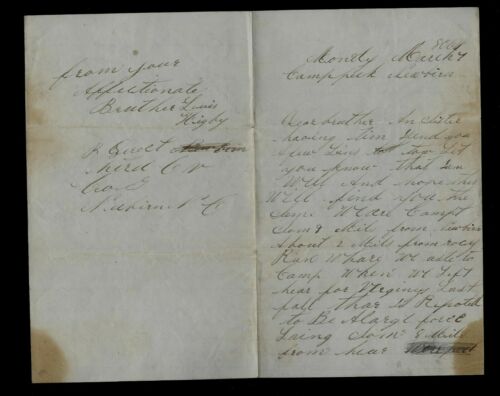 from your
Affectionate
Brother Lewis
Higby
Direct
third C V
Co
Newbern N C
Mondy March
Camp peck newbirn
Dear brother An Sister
having tim I send you
a few Lins to Let
you know that I am
Well And hope this
Will find you the
same We are Campt
som Mils from
About 2 Mils from rocy
Run Whare We use to
Camp When We Left
hear for Virginy Last
fall thar is Reported
to Be A large force
Laing som 8 Mils
from hear